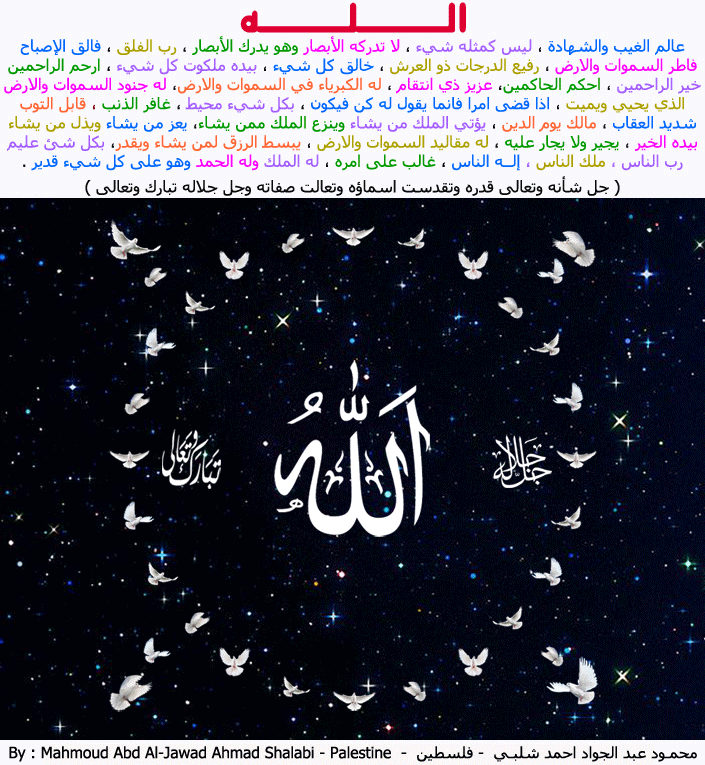 الــــلـــــه
عالم الغيب والشهادة ، ليس كمثله شيء ، لا تدركه الأبصار وهو يدرك الأبصار ، رب الفلق ، فالق الإصباح
فاطر السموات والارض ، رفيع الدرجات ذو العرش ، خالق كل شيء ، بيده ملكوت كل شيء ، ارحم الراحمين
خير الراحمين ، احكم الحاكمين، عزيز ذي انتقام ، له الكبرياء في السموات والارض، له جنود السموات والارض
الذي يحيي ويميت ، اذا قضى امرا فانما يقول له كن فيكون ، بكل شيء محيط ، غافر الذنب ، قابل التوب
شديد العقاب ، مالك يوم الدين ، يؤتي الملك من يشاء وينزع الملك ممن يشاء، يعز من يشاء ويذل من يشاء
بيده الخير ، يجير ولا يجار عليه ، له مقاليد السموات والارض ، يبسط الرزق لمن يشاء ويقدر، بكل شئ عليم
رب الناس ، ملك الناس ، إلــه الناس ، غالب على امره ، له الملك وله الحمد وهو على كل شيء قدير .
( جل شأنه وتعالى قدره وتقدست اسماؤه وتعالت صفاته وجل جلاله تبارك وتعالى )
الله
جل جلاله
تبارك وتعالى
By : Mahmoud Abd Al-Jawad Ahmad Shalabi - Palestine - محمـود عبد الجواد احمد شـلبـي - فلسطين